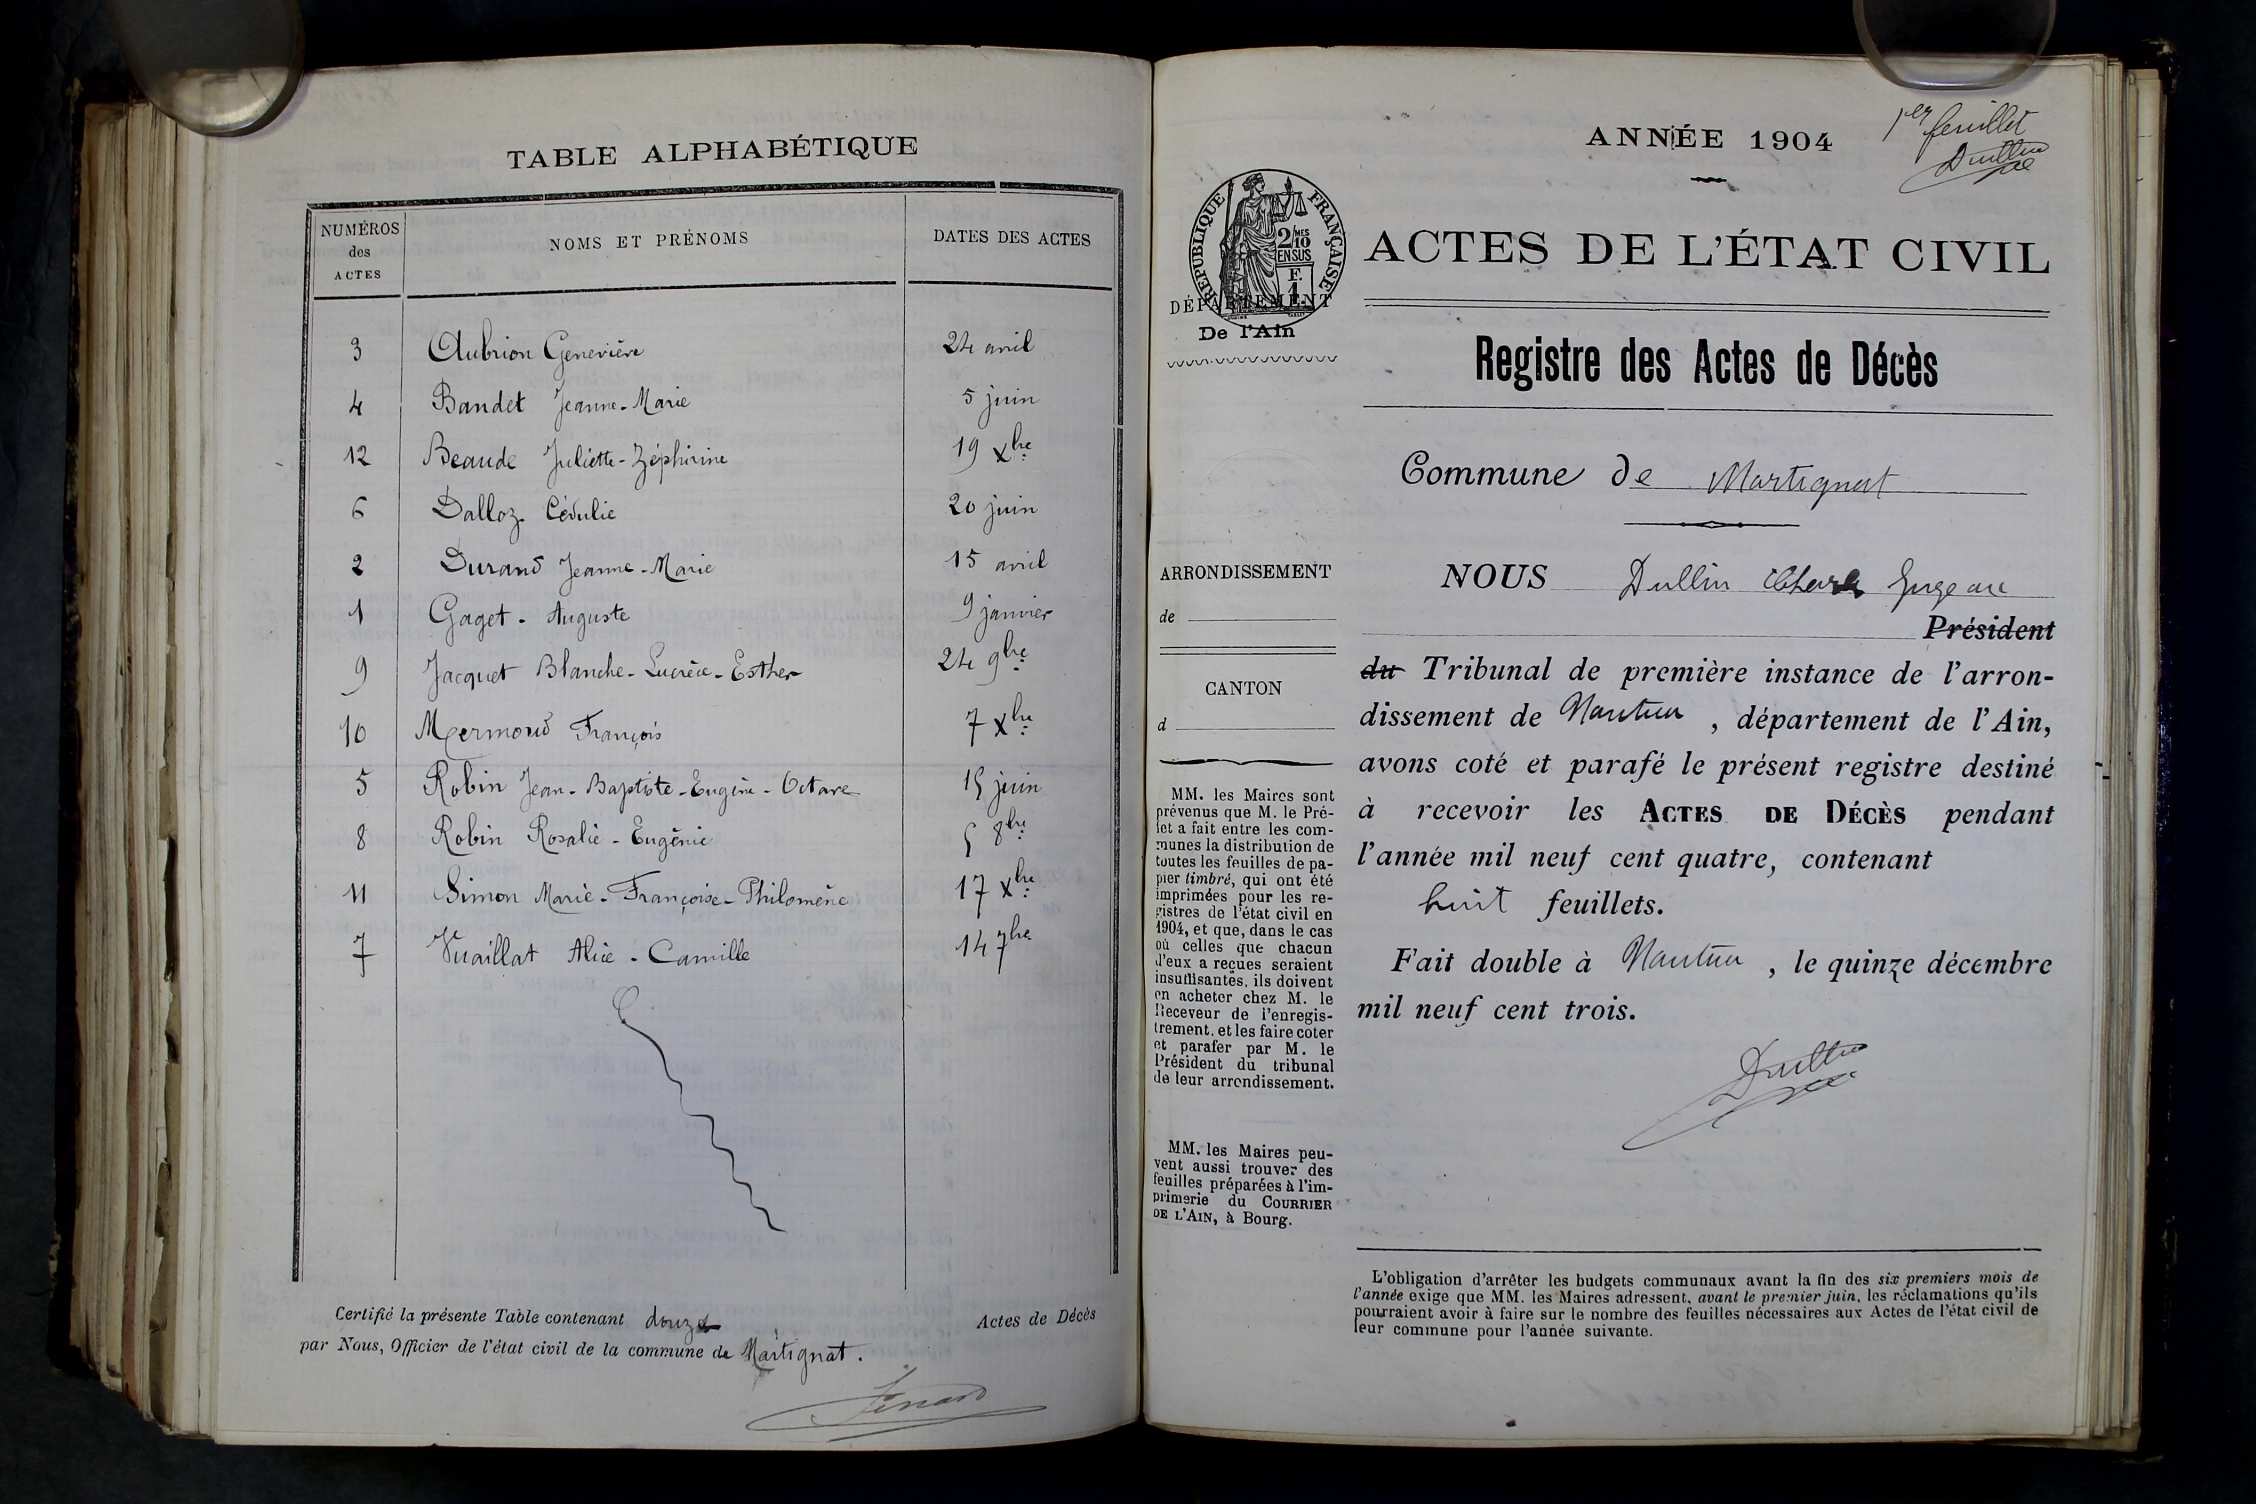 TABLE ALPHABÉTIQUE
NUMÉROS des ACTES
NOMS ET PRÉNOMS
DATES DES ACTES
3 Aubrion Geneviève 24 avril
4 Bandet Jeanne-Marie 5 juin
12 Beaude Juliette-Zéphirine 19 Xbre
6 Dalloz Cédulie 20 juin
2 Durand Jeanne-Marie 15 avril
1 Gaget Auguste 9 janvier
9 Jacquet Blanche-Lucrèce-Esther 24 9bre
10 Mermond François 7 Xbre
5 Robin Jean-Baptiste-Eugène-Octave 15 juin
8 Robin Rosalie-Eugénie 5 8bre
11 Simon Marie-Françoise-Philomène 17 Xbre
7 Vuaillat Alice-Camille 14 7bre
Certifié la présente Table contenant douze Actes de Décès
par Nous, Officier de l'état civil de la commune de Martignat.
1er feuillet
Dullin
ANNÉE 1904
RÉPUBLIQUE FRANÇAISE
2/10MES
EN SUS
F.
1
DÉPARTEMENT
De l'Ain
ACTES DE L'ÉTAT CIVIL
Registre des Actes de Décès
Commune de Martignat
ARRONDISSEMENT
de
CANTON
d
MM. les Maires sont
prévenus que M. le Pré-
fet a fait entre les com-
munes la distribution de
toutes les feuilles de pa-
pier timbré, qui ont été
imprimées pour les re-
gistres de l'état civil en
1904, et que, dans le cas
où celles que chacun
d'eux a reçues seraient
insuffisantes, ils doivent
en acheter chez M. le
Receveur de l'enregis-
trement, et les faire coter
et parafer par M. le
Président du tribunal
de leur arrondissement.
MM. les Maires peu-
vent aussi trouver des
feuilles préparées à l'im-
primerie du COURRIER
DE L'AIN, à Bourg.
NOUS Dullin
Président
du Tribunal de première instance de l'arron-
dissement de Nantua, département de l'Ain,
avons coté et parafé le présent registre destiné
à recevoir les ACTES DE DÉCÈS pendant
l'année mil neuf cent quatre, contenant
huit feuillets.
Fait double à Nantua, le quinze décembre
mil neuf cent trois.
Dullin
L'obligation d'arrêter les budgets communaux avant la fin des six premiers mois de
l'année exige que MM. les Maires adressent, avant le premier juin, les réclamations qu'ils
pourraient avoir à faire sur le nombre des feuilles nécessaires aux Actes de l'état civil de
leur commune pour l'année suivante.